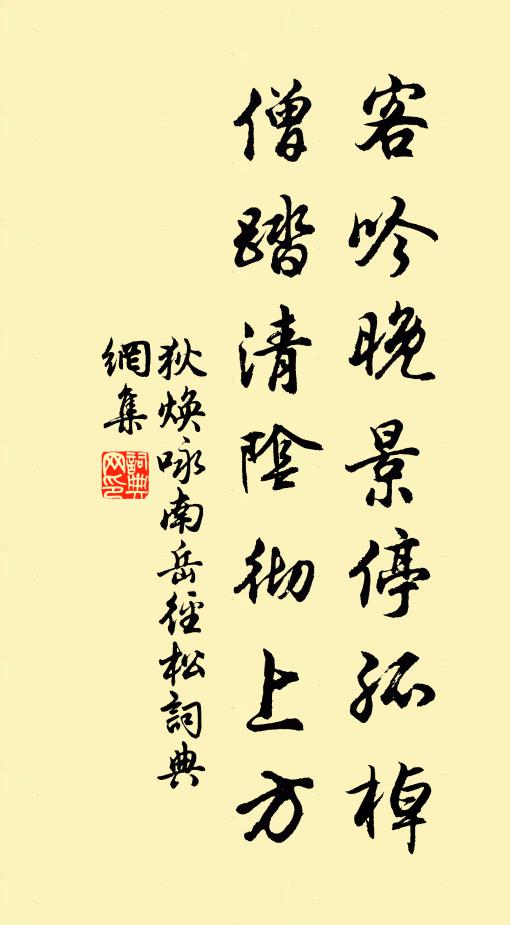 客吟晚景停孤棹
僧踏清陰彻上方
狄焕咏南岳徑松詞典
網集
詞典
网印